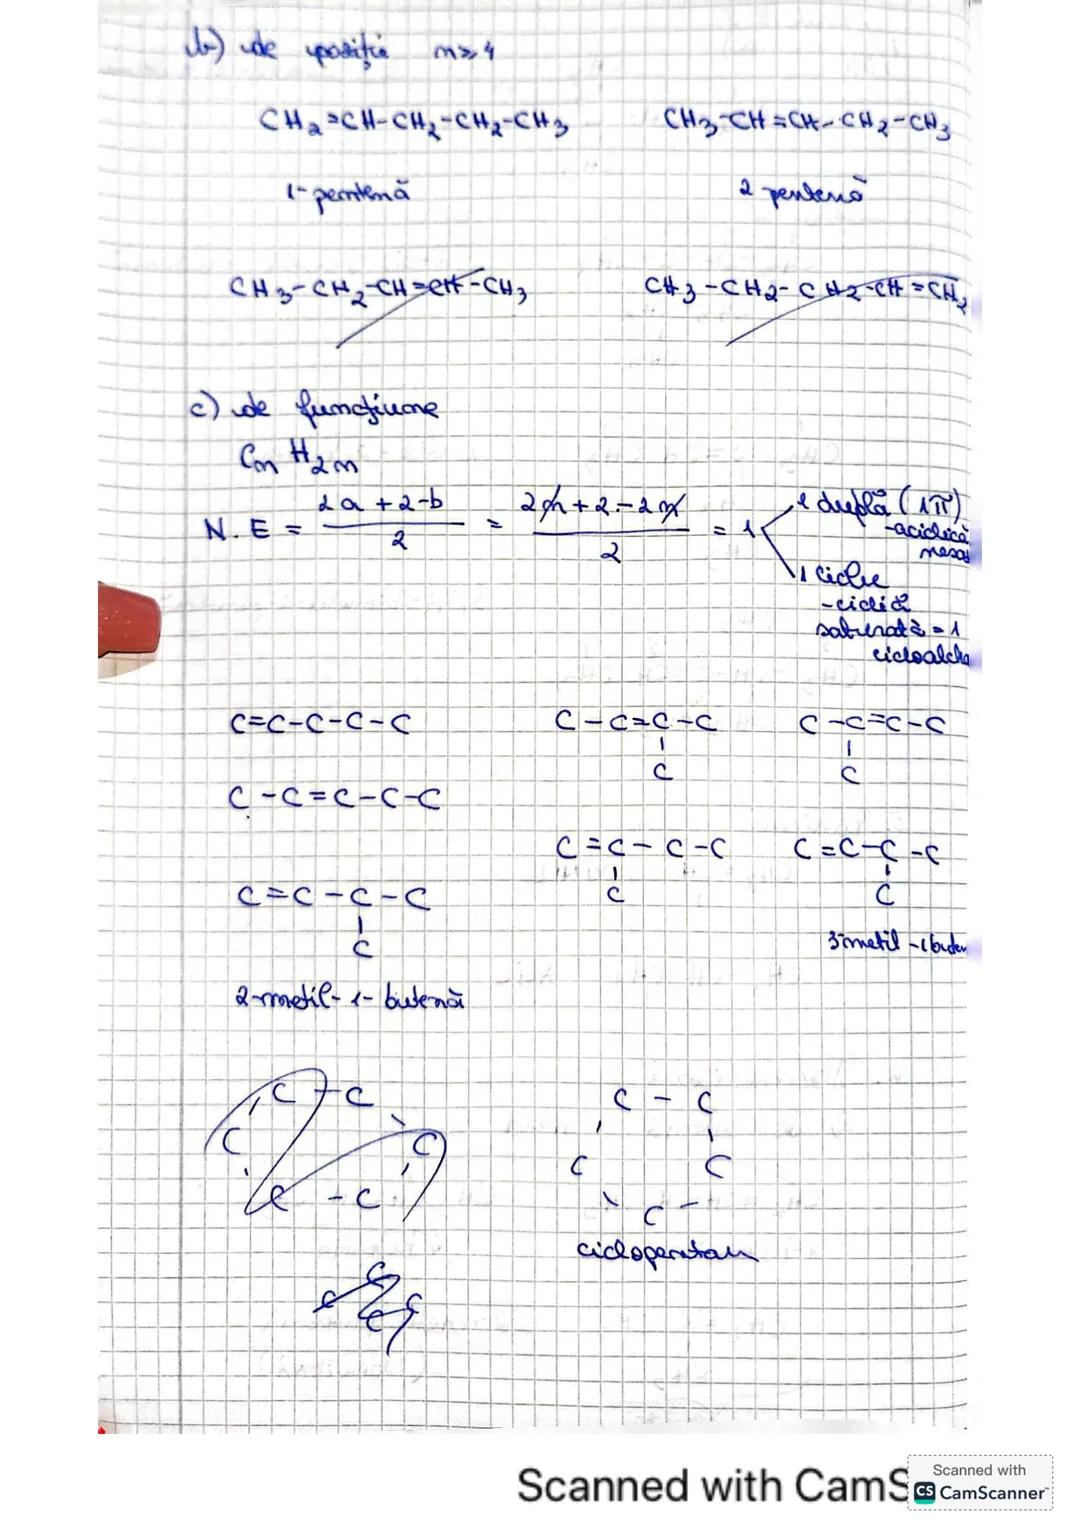 b) de poziție n≥4
CH₂=CH-CH₂-CH₂-CH₃ CH₃-CH=CH-CH₂-CH₃
1-pentenă 2 pentenă
CH₃-CH₂-CH=CH-CH₃ CH₃-CH₂-CH₂-CH=CH₂
c) de funcțiune
Cn H2n
N.E = 2a+2-b / 2 = 2n+2-2n / 2 = 1
1 dublă (1π)
-aciclică
nesa
1 ciclu
-ciclică
saturată = 1
cicloalca
C=C-C-C-C C-C=C-C C-C=C-C
C C
C-C=C-C-C
C=C-C-C C=C-C-C
C C
C=C-C-C
C
3-metil-1buten
2-metil-1-butenă
C-C C-C
C C C C
C-C C
ciclopentan
C
C C
C
Scanned with CamS
Scanned with
CS CamScanner